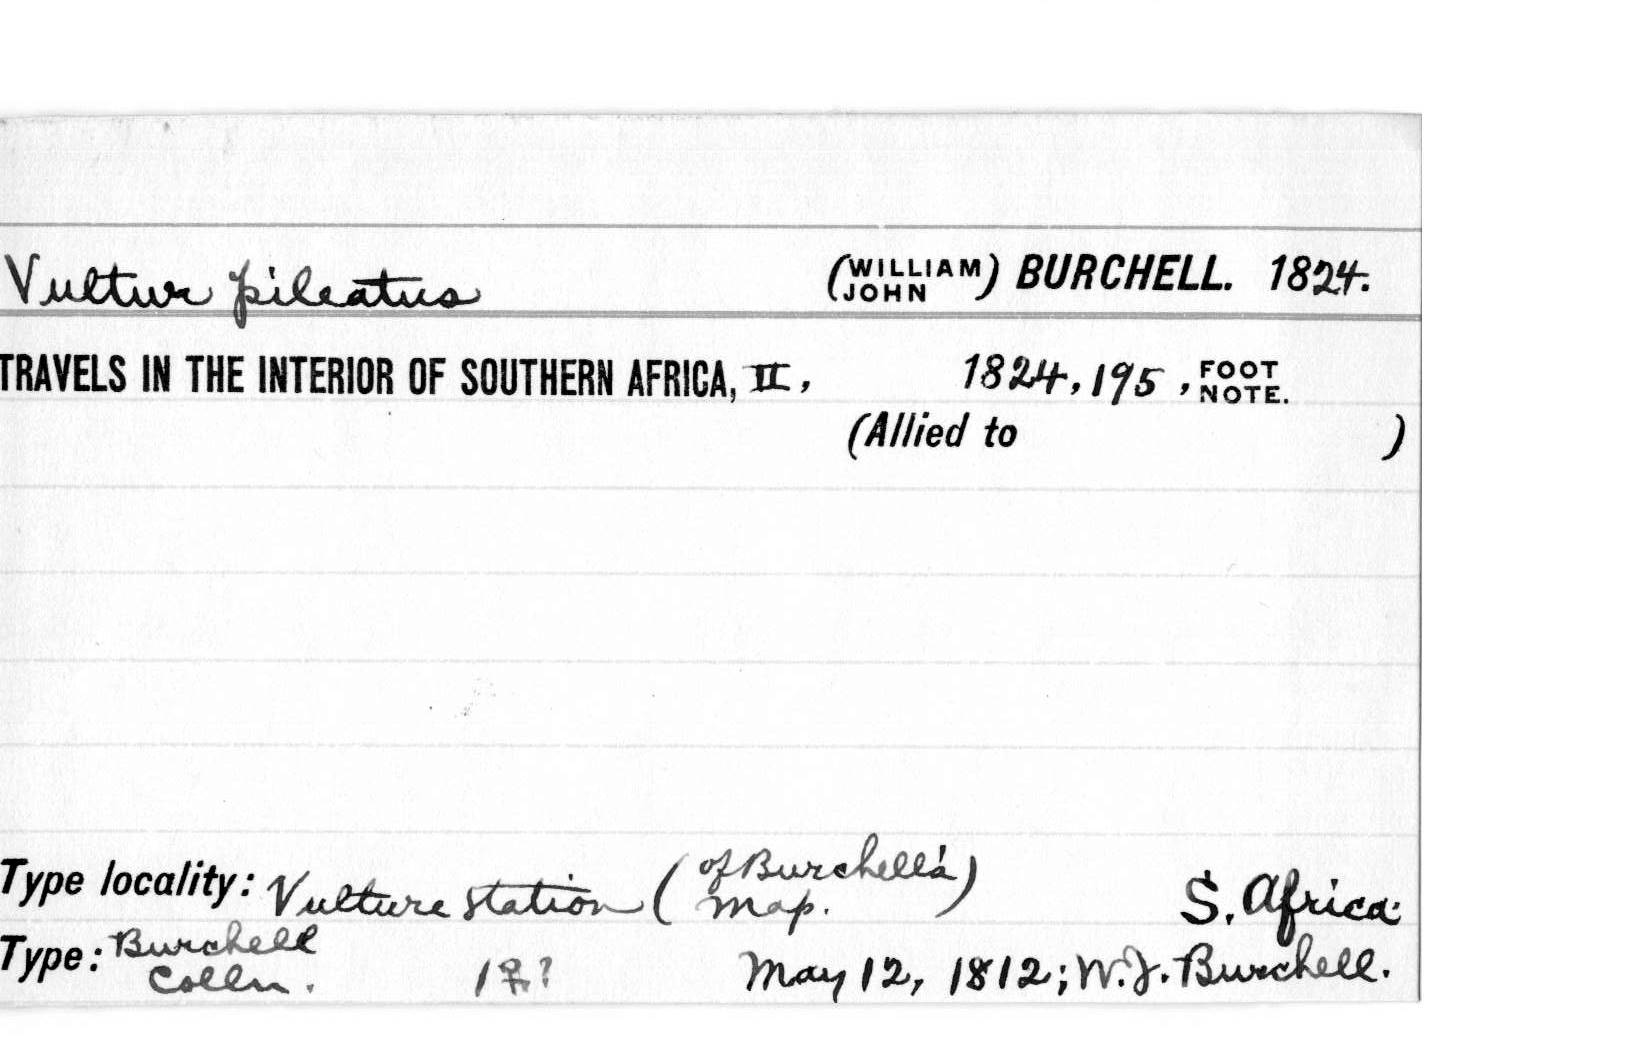 Vultur pileatus (WILLIAM JOHN) BURCHELL. 1824.
TRAVELS IN THE INTERIOR OF SOUTHERN AFRICA, II, 1824, 195, FOOT NOTE.
(Allied to )
Type locality: Vulture Station (of Burchell's Map.) S. Africa.
Type: Burchell Colln. 1 ♀? May 12, 1812; W.J. Burchell.